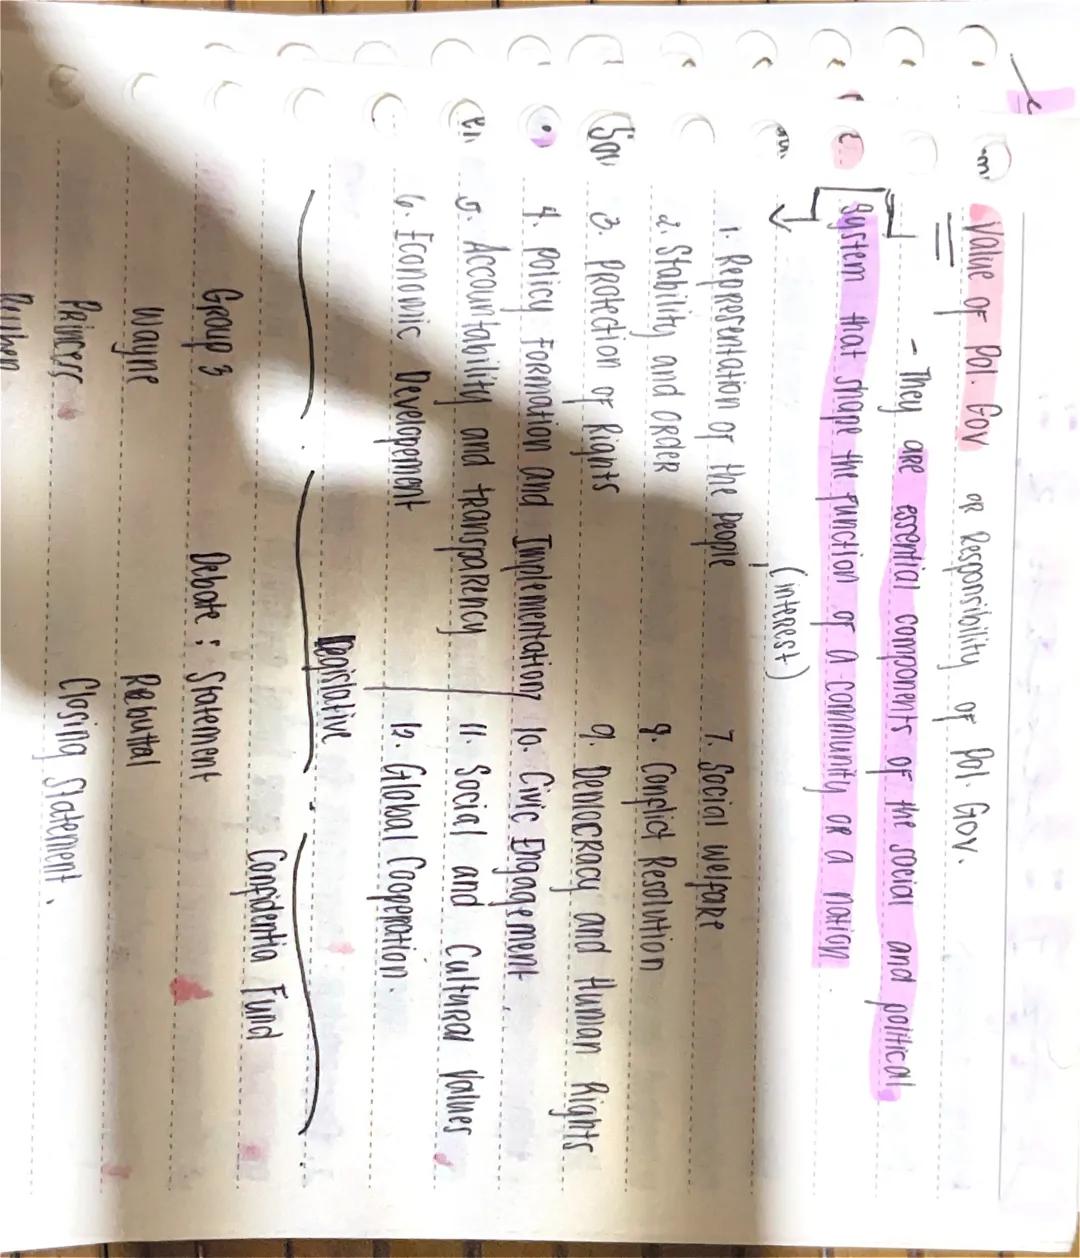 Value of Pol. Gov or Responsibility of Pol. Gov.
- They are essential components of the social and political
system that shape the function of a community or a nation.
(interest)
1. Representation of the people
2. Stability and order
3. Protection of Rights
4. Policy Formation and Implementation
5. Accountability and transparency
6. Economic Developement
7. Social welfare
8. Conflict Resolution
9. Democracy and Human Rights
10. Civic Engagement.
11. Social and Cultural Values
12. Global Cooperation.
Legislative
Confidentia Fund
Group 3
Wayne
Princess
Debate : Statement
Rebuttal
Closing Statement.